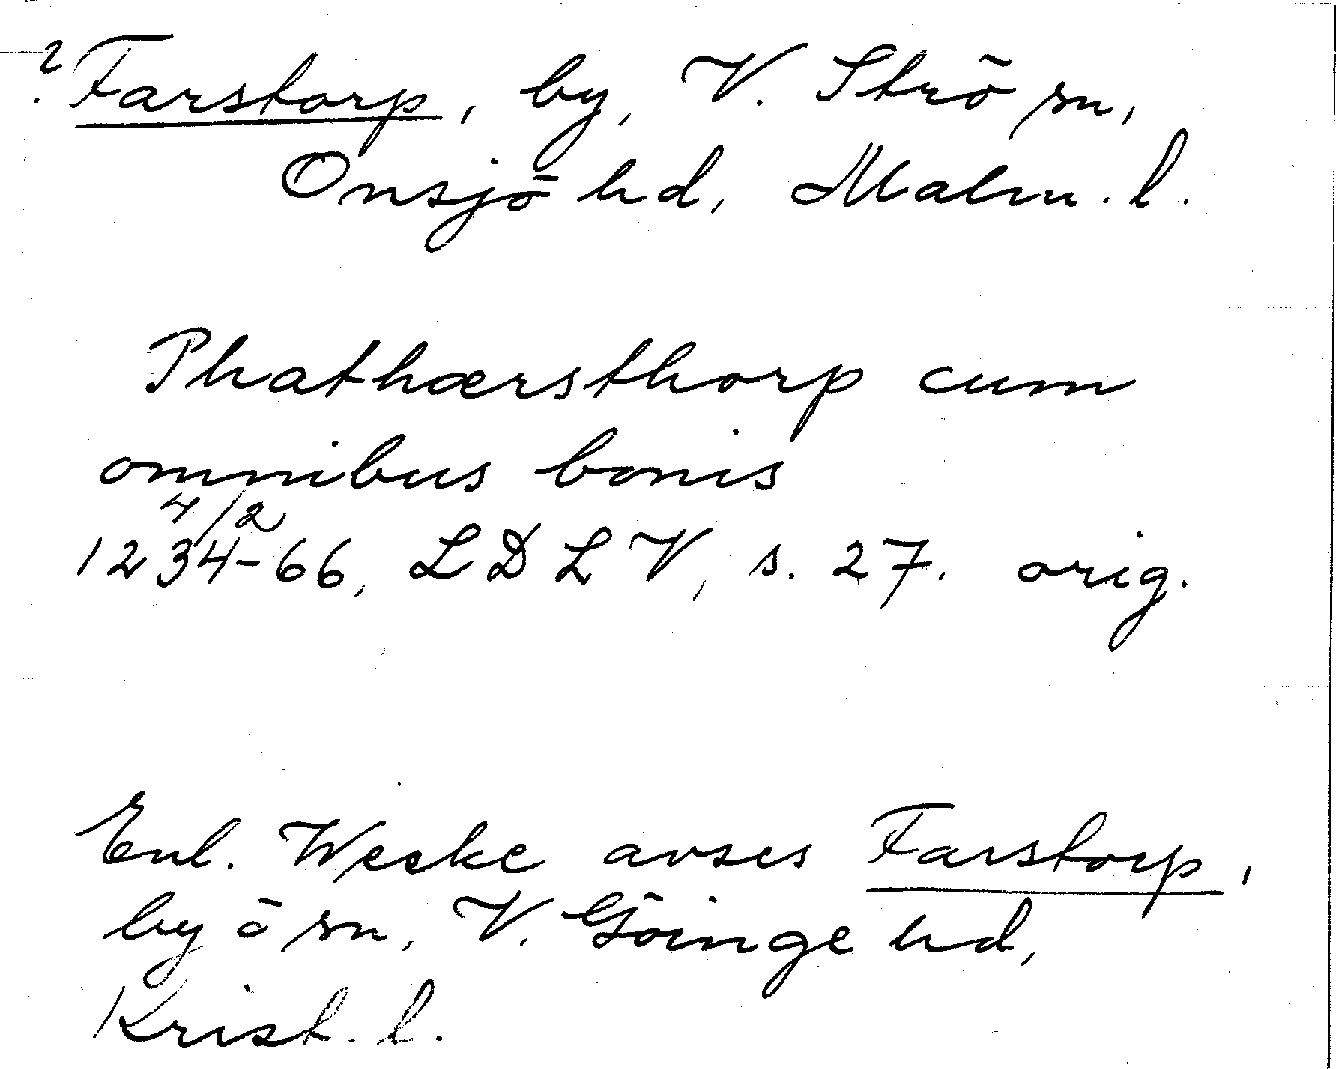 ? Farstorp, by, V. Strö sn,
Onsjö hd, Malm. l.
Phathærsthorp cum
omnibus bonis
4/2
1234-66, LDLV, s. 27. orig.
Enl. Weeke avses Farstorp,
by o sn, V. Göinge hd,
Krist. l.